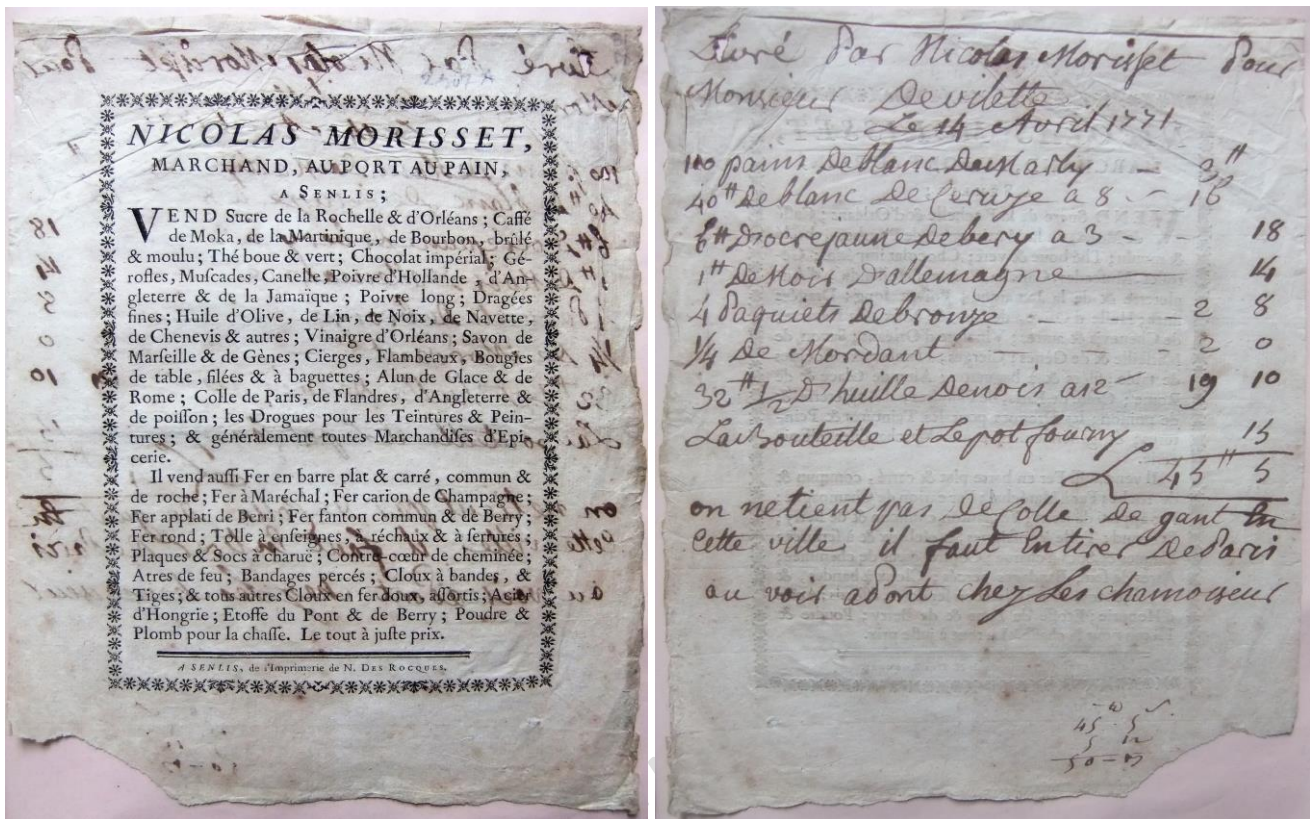 NICOLAS MORISSET,
MARCHAND, AU PORT AU PAIN,
A SENLIS;
VEND Sucre de la Rochelle & d'Orléans ; Caffé
de Moka, de la Martinique, de Bourbon, brûlé
& moulu ; Thé boue & vert ; Chocolat impérial ; Gé-
rofles, Muſcades, Canelle, Poivre d'Hollande, d'An-
gleterre & de la Jamaïque ; Poivre long ; Dragées
fines ; Huile d'Olive, de Lin, de Noix, de Navette,
de Chenevis & autres ; Vinaigre d'Orléans ; Savon de
Marſeille & de Gènes ; Cierges, Flambeaux, Bougies
de table, filées & à baguettes ; Alun de Glace & de
Rome ; Colle de Paris, de Flandres, d'Angleterre &
de poiſſon ; les Drogues pour les Teintures & Pein-
tures ; & généralement toutes Marchandiſes d'Epi-
cerie.
Il vend auſſi Fer en barre plat & carré, commun &
de roche ; Fer à Maréchal ; Fer carion de Champagne ;
Fer applati de Berri ; Fer fanton commun & de Berry ;
Fer rond ; Tôlle à enſeignes, à réchaux & à ſerrures ;
Plaques & Socs à charue ; Contre-cœur de cheminée ;
Atres de feu ; Bandages percés ; Cloux à bandes, &
Tiges ; & tous autres Cloux en fer doux, aſſortis ; Acier
d'Hongrie ; Etoffe du Pont & de Berry ; Poudre &
Plomb pour la chaſſe. Le tout à juſte prix.
A SENLIS, de l'Imprimerie de N. DES ROCQUES.
Livré Par Nicolas Morisset Pour
Monsieur Devilette
Le 14 Avril 1771
100 pains De blanc De Marly - 3 ₶
40 ₶ De blanc De Ceruze a 8 - 16
6 ₶ D'ocre jaune De bery a 3 - - 18
1 ₶ De Noir D'allemagne 14
4 Paquiets De bronze - - - 2 8
1/4 De Mordant - - - 2 0
32 ₶ 1/2 D'huille De nois a 12 - 19 10
La Bouteille et Le pot fourny 15
45 ₶ 5
on ne tient pas De Colle De gant En
Cette ville il faut En tirer De Paris
ou voir chez Les chamoiseur
45 - 5
5 12
50 -